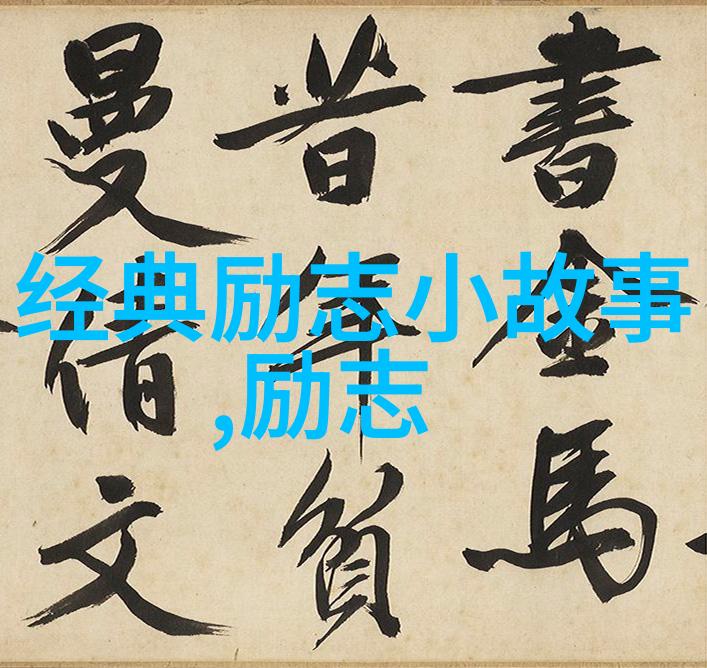 書金馬
昔年貧
曼倩文
经典励志小故事
,励志